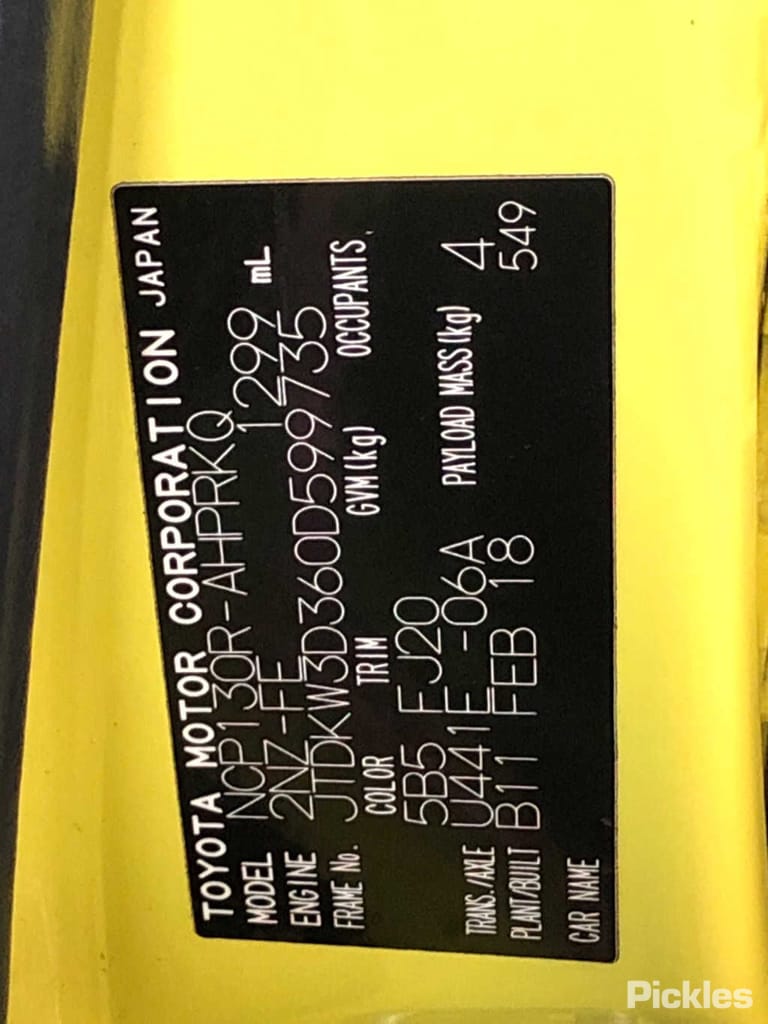 TOYOTA MOTOR CORPORATION JAPAN
MODEL NCP130R-AHPRKQ
ENGINE 2NZ-FE 1299 mL
FRAME No. JTDKW3D360D599735
COLOR TRIM GVM(kg) OCCUPANTS
5B5 FJ20
TRANS./AXLE U441E -06A PAYLOAD MASS(kg) 4
PLANT/BUILT B11 FEB 18 549
CAR NAME
Pickles